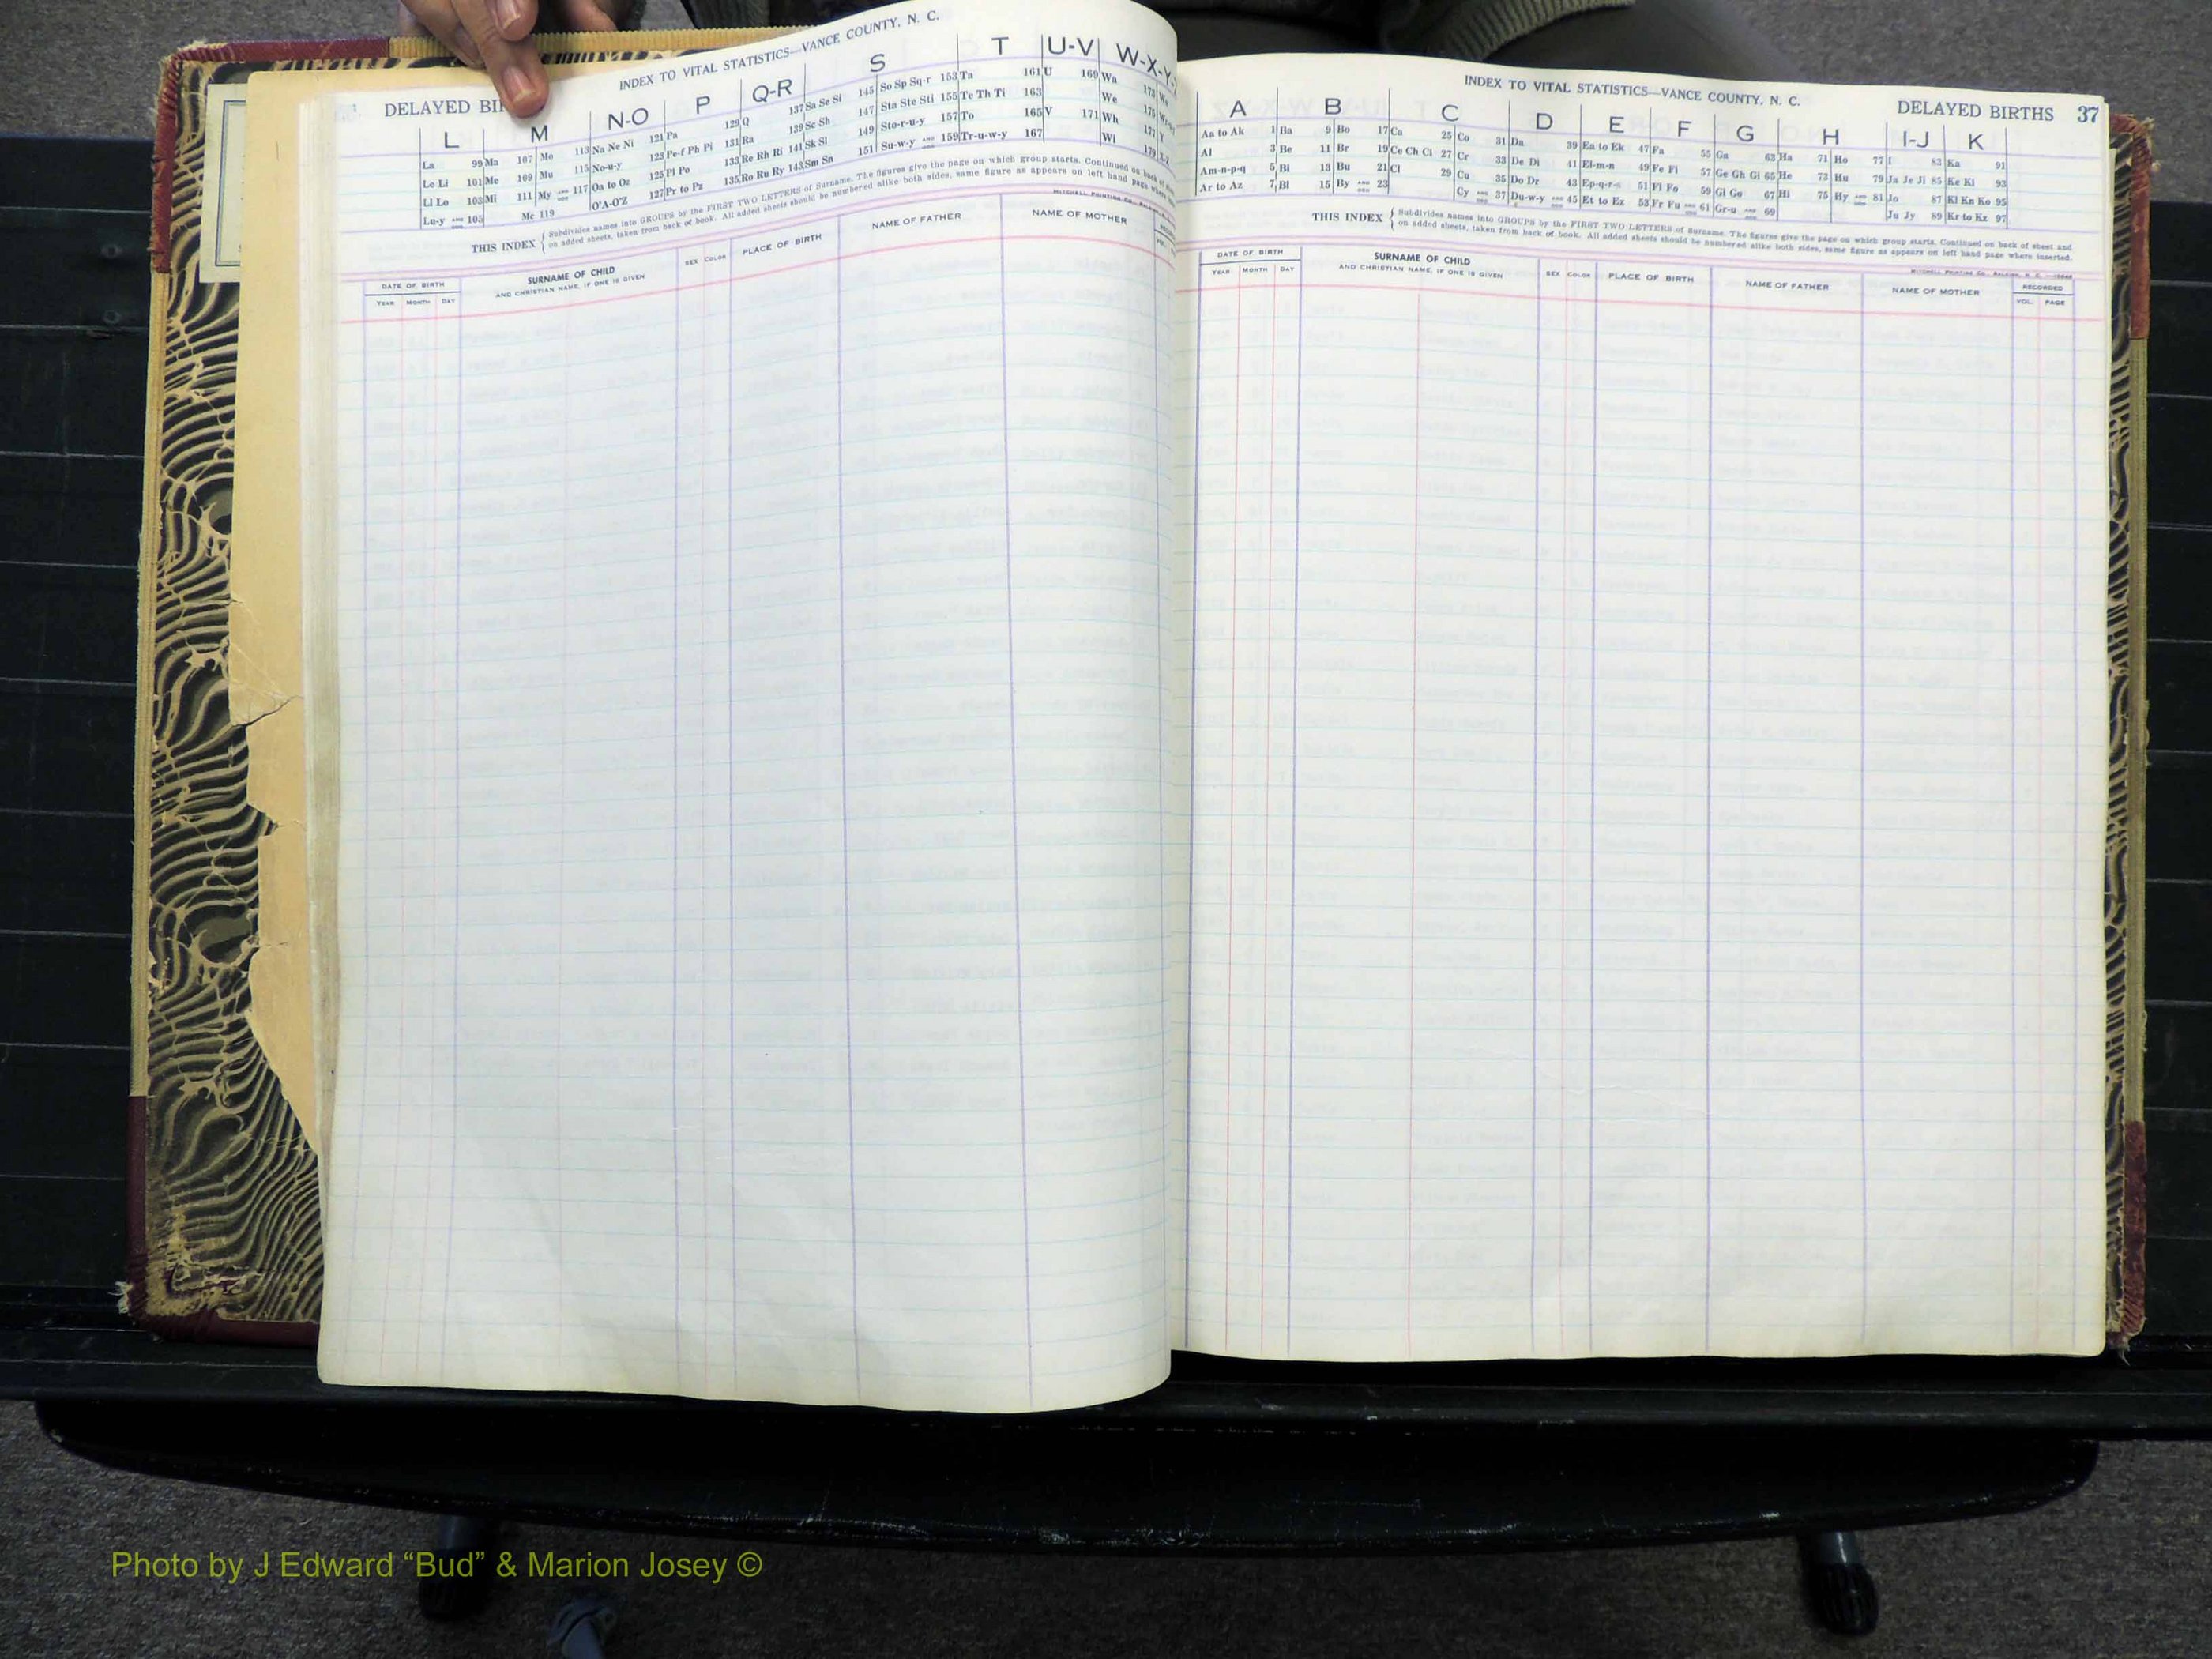 INDEX TO VITAL STATISTICS—VANCE COUNTY, N. C.
DELAYED BI
L M N-O P Q-R S T U-V W-X-Y-
La 99 Ma 107 Mo 113 Na Ne Ni 121 Pa 129 Q 137 Sa Se Si 145 So Sp Sq-r 153 Ta 161 U 169 Wa 173
Le Li 101 Me 109 Mu 115 No-u-y 123 Pe-f Ph Pi 131 Ra 139 Sc Sh 147 Sta Ste Sti 155 Te Th Ti 163 We 175
Ll Lo 103 Mi 111 My AND 117 Oa to Oz 125 Pl Po 133 Re Rh Ri 141 Sk Sl 149 Sto-r-u-y 157 To 165 V 171 Wh 177 Y
Lu-y AND 105 Mc 119 O'A-O'Z 127 Pr to Pz 135 Ro Ru Ry 143 Sm Sn 151 Su-w-y AND 159 Tr-u-w-y 167 Wi 179
THIS INDEX { Subdivides names into GROUPS by the FIRST TWO LETTERS of Surname. The figures give the page on which group starts. Continued on back of
on added sheets, taken from back of book. All added sheets should be numbered alike both sides, same figure as appears on left hand page
MITCHELL PRINTING CO., RALEIGH,
DATE OF BIRTH
YEAR MONTH DAY
SURNAME OF CHILD
AND CHRISTIAN NAME, IF ONE IS GIVEN
SEX COLOR PLACE OF BIRTH NAME OF FATHER NAME OF MOTHER
VOL.
INDEX TO VITAL STATISTICS—VANCE COUNTY, N. C. DELAYED BIRTHS 37
A B C D E F G H I-J K
Aa to Ak 1 Ba 9 Bo 17 Ca 25 Co 31 Da 39 Ea to Ek 47 Fa 55 Ga 63 Ha 71 Ho 77 I 83 Ka 91
Al 3 Be 11 Br 19 Ce Ch Ci 27 Cr 33 De Di 41 El-m-n 49 Fe Fi 57 Ge Gh Gi 65 He 73 Hu 79 Ja Je Ji 85 Ke Ki 93
Am-n-p-q 5 Bi 13 Bu 21 Cl 29 Cu 35 Do Dr 43 Ep-q-r-s 51 Fl Fo 59 Gl Go 67 Hi 75 Hy AND 81 Jo 87 Kl Kn Ko 95
Ar to Az 7 Bl 15 By AND 23 Cy AND 37 Du-w-y AND 45 Et to Ez 53 Fr Fu AND 61 Gr-u AND 69 Ju Jy 89 Kr to Kz 97
THIS INDEX { Subdivides names into GROUPS by the FIRST TWO LETTERS of Surname. The figures give the page on which group starts. Continued on back of sheet and
on added sheets, taken from back of book. All added sheets should be numbered alike both sides, same figure as appears on left hand page where inserted.
MITCHELL PRINTING CO., RALEIGH, N. C.
DATE OF BIRTH
YEAR MONTH DAY
SURNAME OF CHILD
AND CHRISTIAN NAME, IF ONE IS GIVEN
SEX COLOR PLACE OF BIRTH NAME OF FATHER NAME OF MOTHER
RECORDED
VOL. PAGE
Photo by J Edward “Bud” & Marion Josey ©